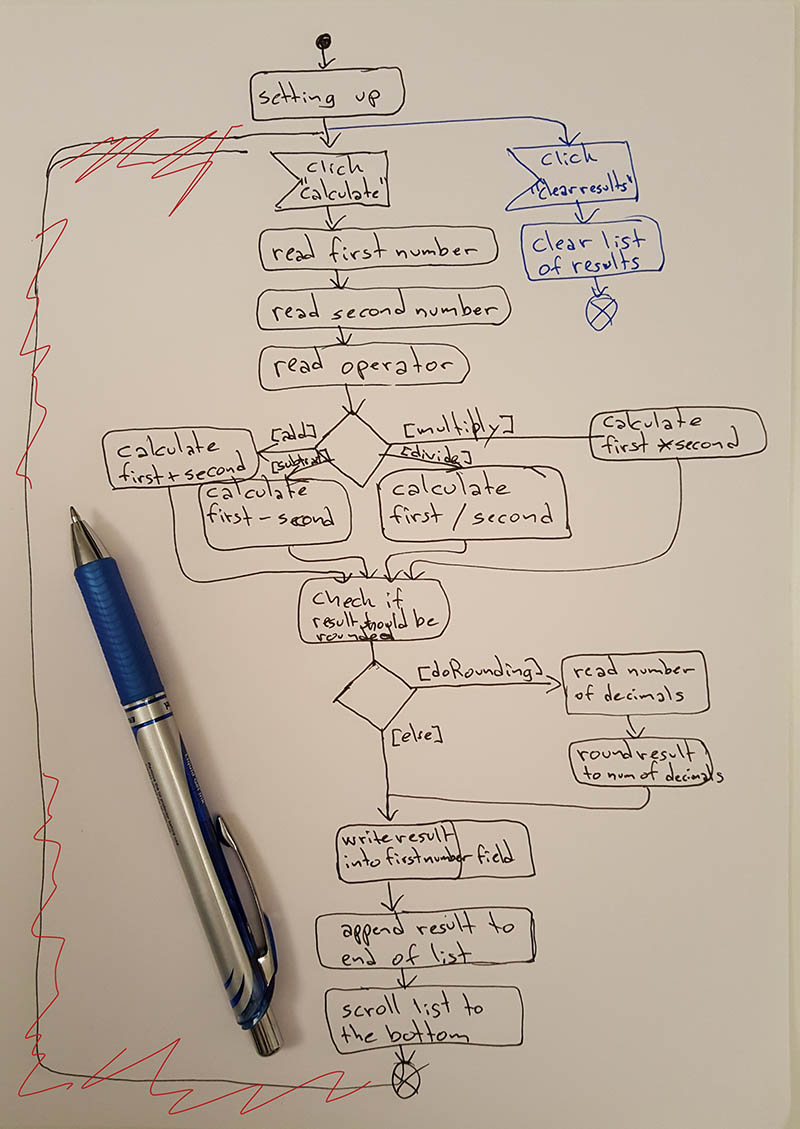 setting up
click
"Calculate"
click
"clear results"
read first number
clear list
of results
read second number
read operator
[add]
[multiply]
[subtract]
[divide]
calculate
first + second
calculate
first - second
calculate
first / second
calculate
first * second
check if
result should be
rounded
[doRounding]
read number
of decimals
[else]
round result
to num of decimals
write result
into first number field
append result to
end of list
scroll list to
the bottom